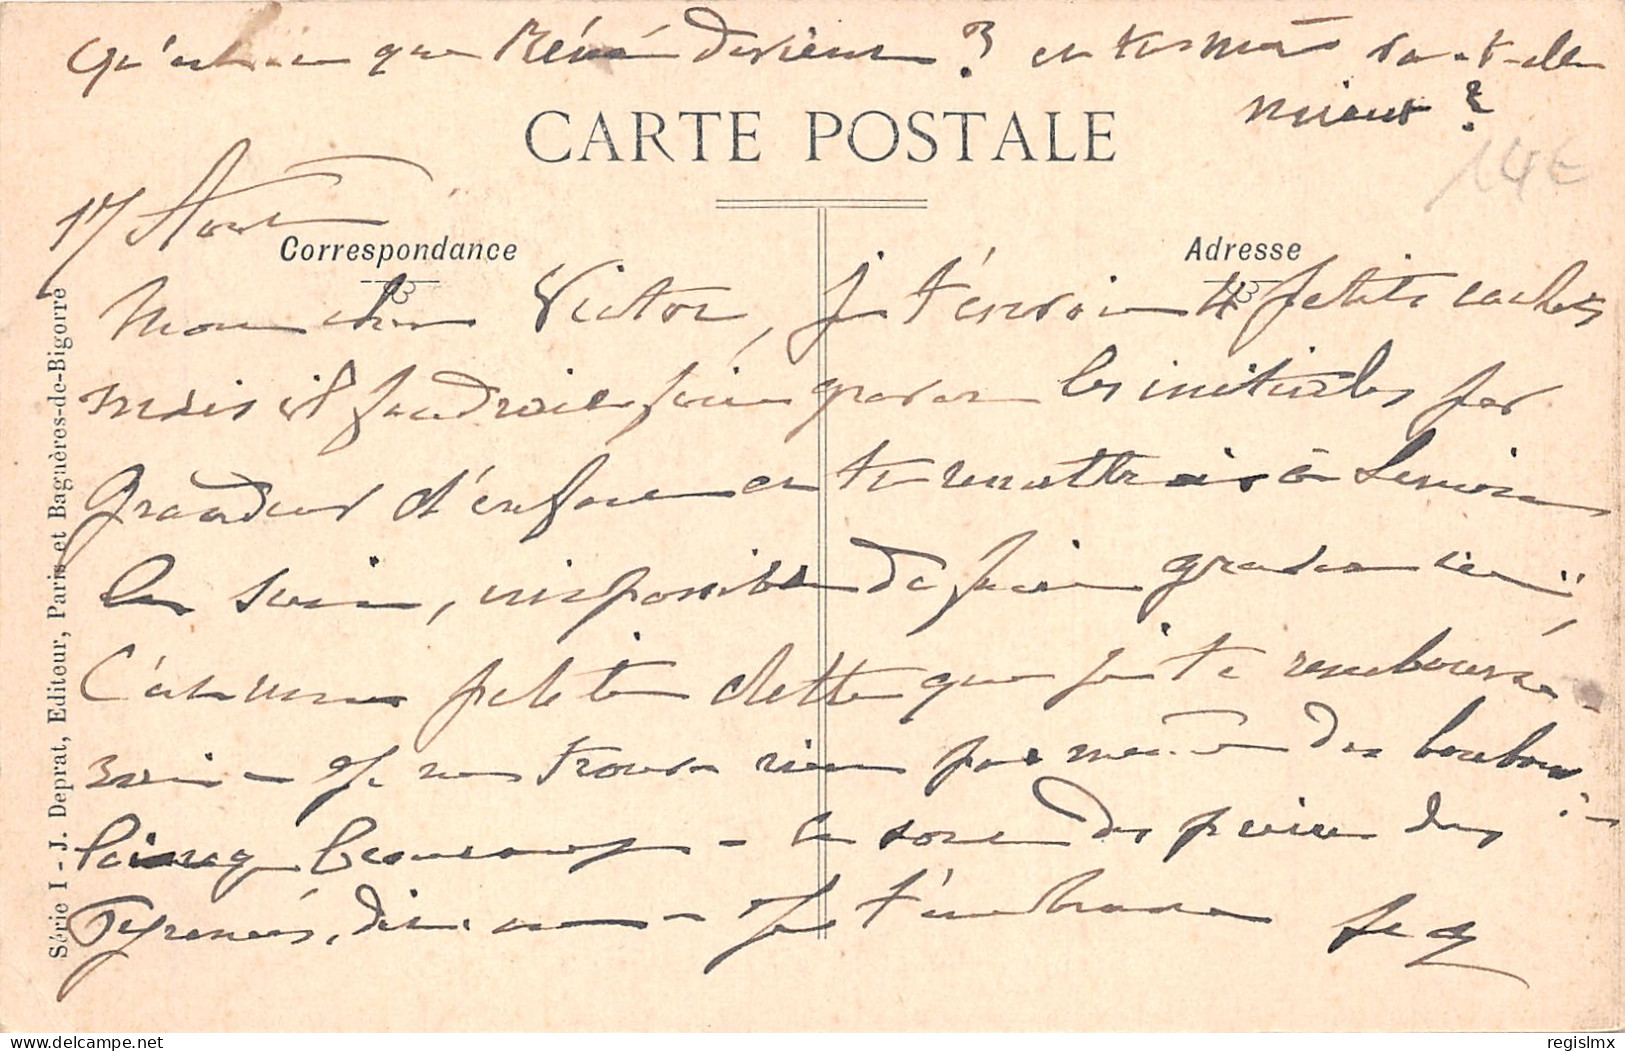 Qu'est-ce que Réné devient ? et ta maman va-t-elle
mieux ?
CARTE POSTALE
14€
17 Aout
Correspondance
Adresse
Mon cher Victor, je t'envoie 4 petits cachets
mais il faudrait faire graver les initiales par
Grandeur d'enfance en te remettrais à
le soin, impossible de faire graver ici
C'est une petite dette que je te rembourserai
- Je ne trouve rien pas même des bonbons
beaucoup - la sont des pierres des
Pyrenées, - Je t'embrasse
Série I - J. Deprat, Editeur, Paris et Bagnères-de-Bigorre
delcampe.net
regislmx